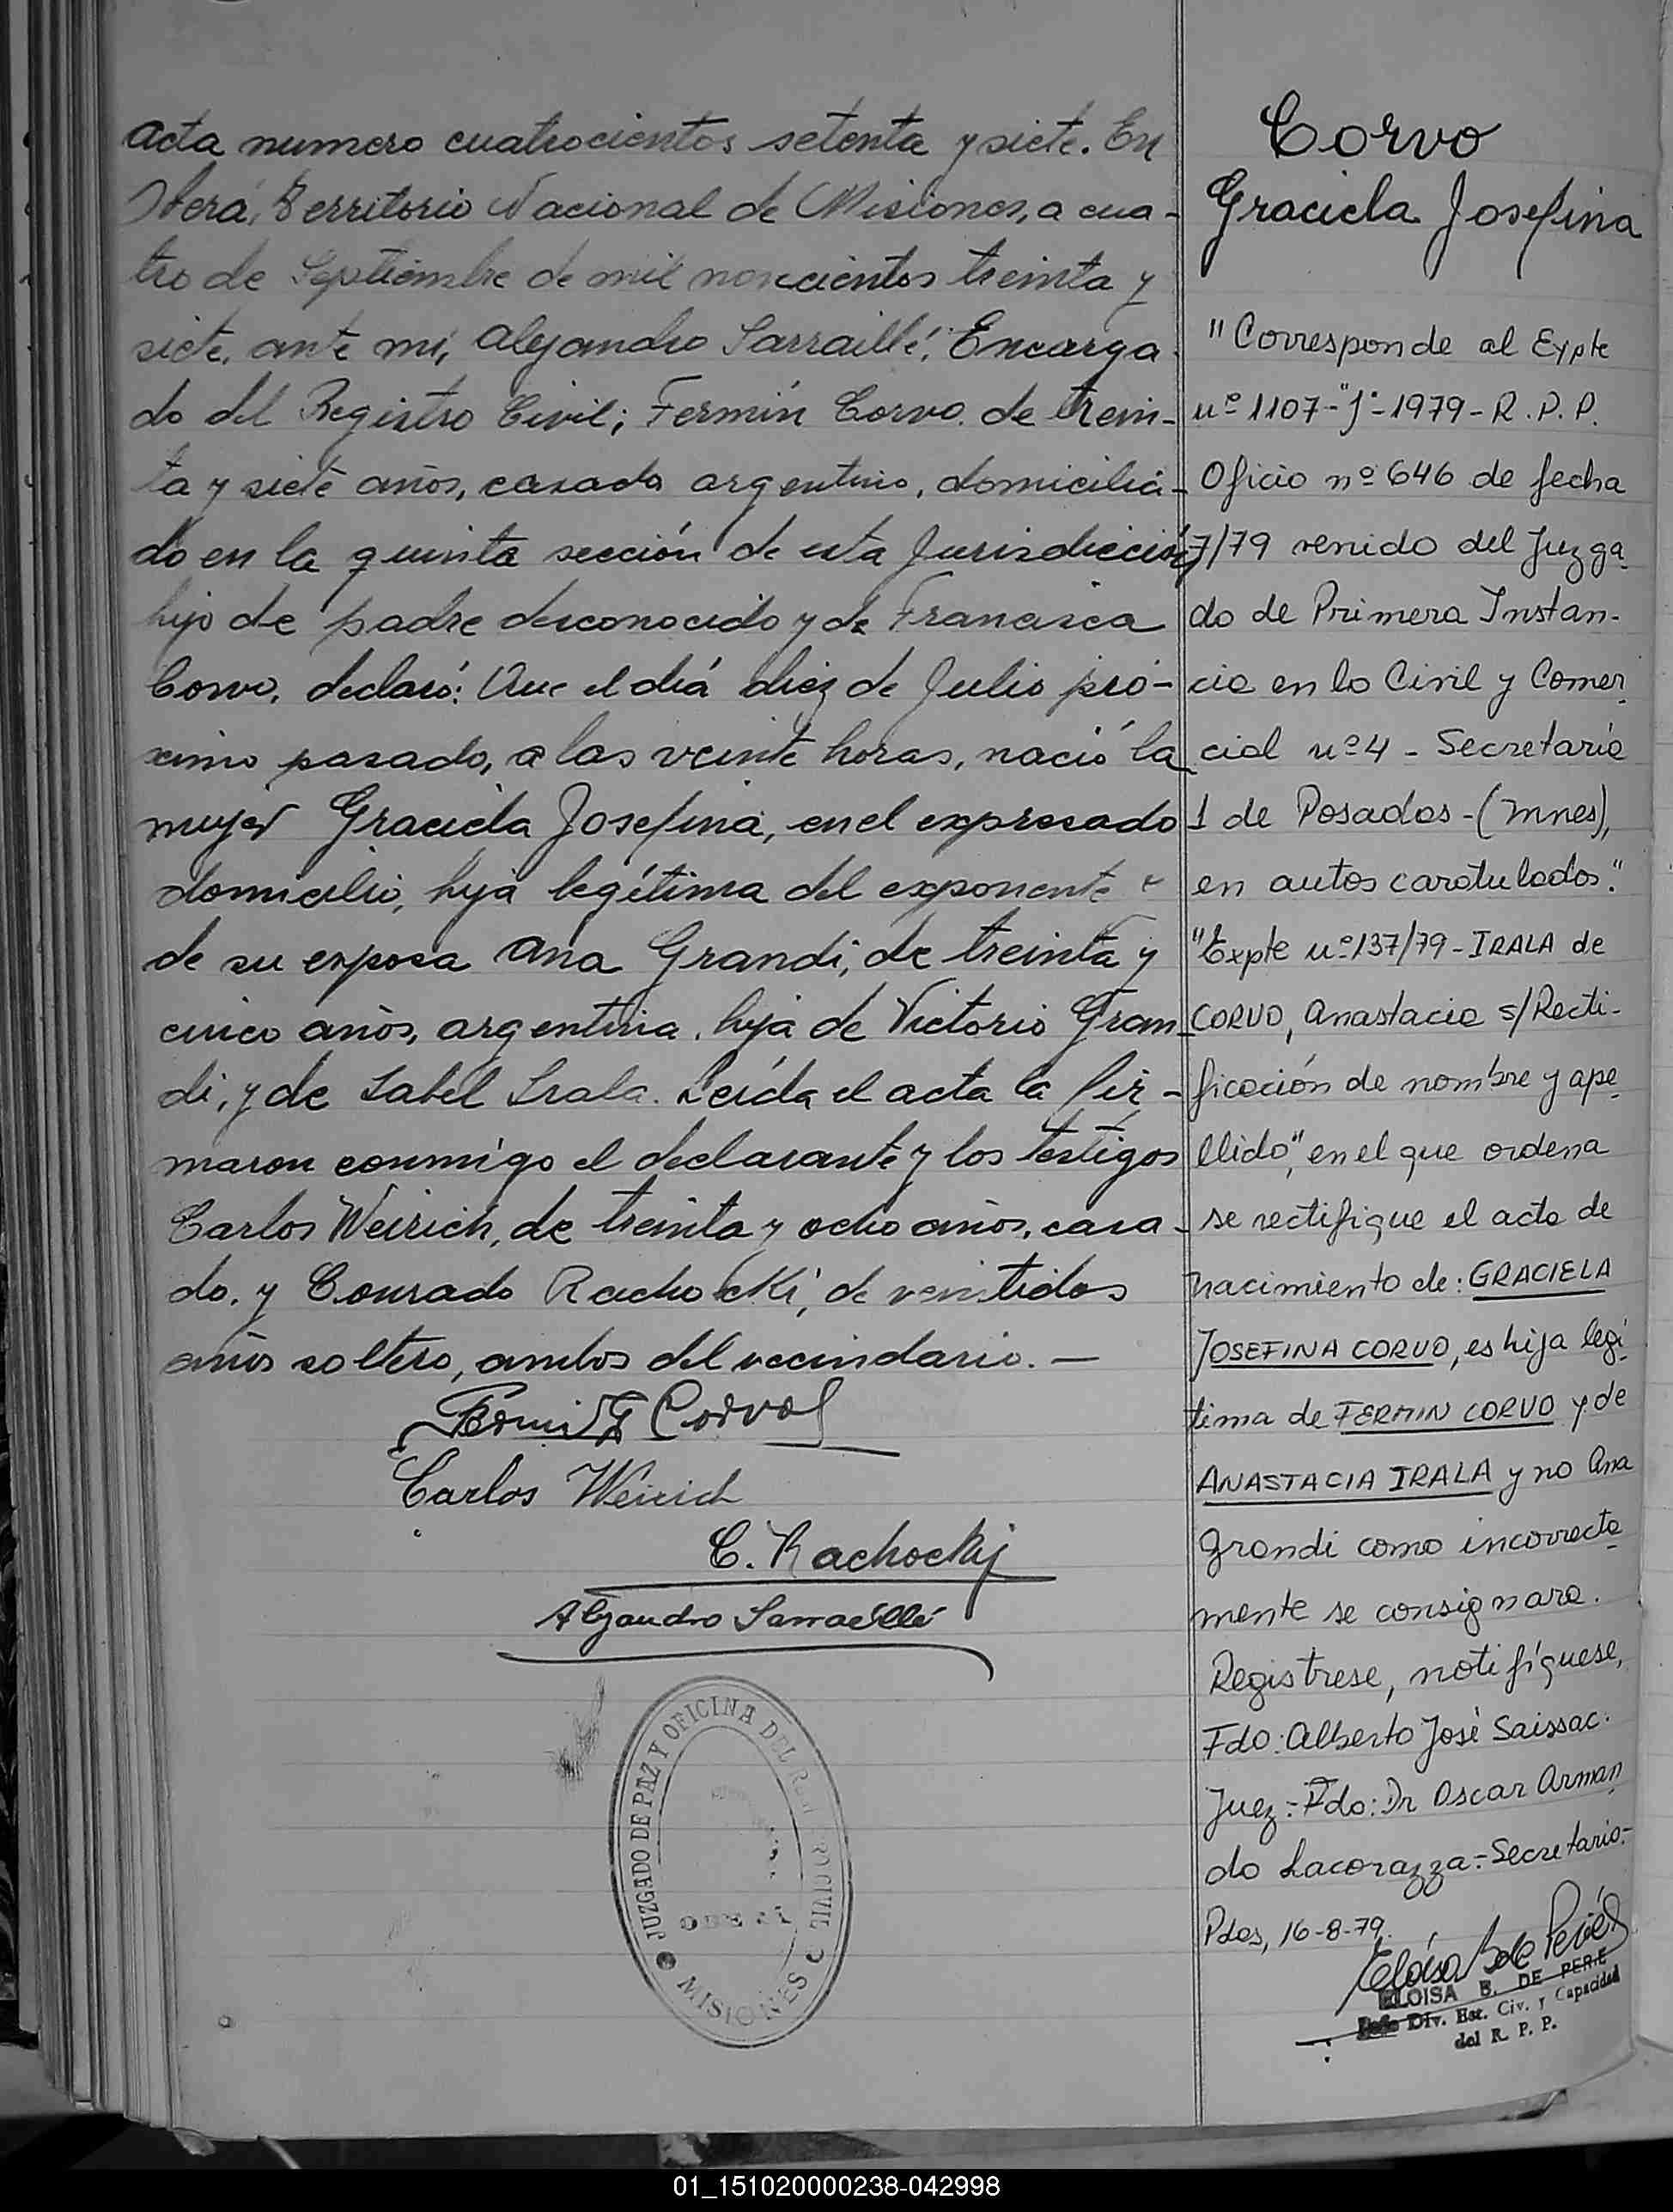 Acta numero cuatrocientos setenta y siete. En
Oberá, Territorio Nacional de Misiones, a cua-
tro de Septiembre de mil novecientos treinta y
siete, ante mí, Alejandro Sarraillé, Encarga-
do del Registro Civil; Fermín Corvo, de trein-
ta y siete años, casado, argentino, domicilia-
do en la quinta sección de esta Jurisdicción,
hijo de padre desconocido y de Francisca
Corvo, declaró: Que el día diez de Julio pró-
ximo pasado, a las veinte horas, nació la
mujer Graciela Josefina, en el expresado
domicilio, hija legítima del exponente y
de su esposa Ana Grandi, de treinta y
cinco años, argentina, hija de Victorio Gran-
di, y de Isabel Irala. Leída el acta la fir-
maron conmigo el declarante y los testigos
Carlos Weirich, de treinta y ocho años, casa-
do, y Conrado Rachocki, de veintidos
años soltero, ambos del vecindario. —
Fermin Corvo
Carlos Weirich
C. Rachockij
Alejandro Sarraillé
JUZGADO DE PAZ Y OFICINA DEL REGISTRO CIVIL
OBERÁ
MISIONES
Corvo
Graciela Josefina
"Corresponde al Expte
nº 1107-"J"-1979-R.P.P.
Oficio nº 646 de fecha
7/79 venido del Juzga-
do de Primera Instan-
cia en lo Civil y Comer-
cial nº 4 - Secretaria
1 de Posadas - (Mnes),
en autos caratulados."
"Expte nº 137/79 - IRALA de
CORVO, Anastacia s/Recti-
ficación de nombre y ape-
llido", en el que ordena
se rectifique el acta de
nacimiento de: GRACIELA
JOSEFINA CORVO, es hija legí-
tima de FERMIN CORVO y de
ANASTACIA IRALA y no Ana
Grandi como incorrecta-
mente se consignara.
Registrese, notifíquese,
Fdo: Alberto José Saissac.
Juez.- Fdo: Dr Oscar Arman-
do Lacorazza.- Secretario.-
Pdas, 16-8-79.
Eloisa B de Perié
ELOISA B. DE PERIE
Jefe Div. Est. Civ. y Capacidad
del R. P. P.
01_151020000238-042998